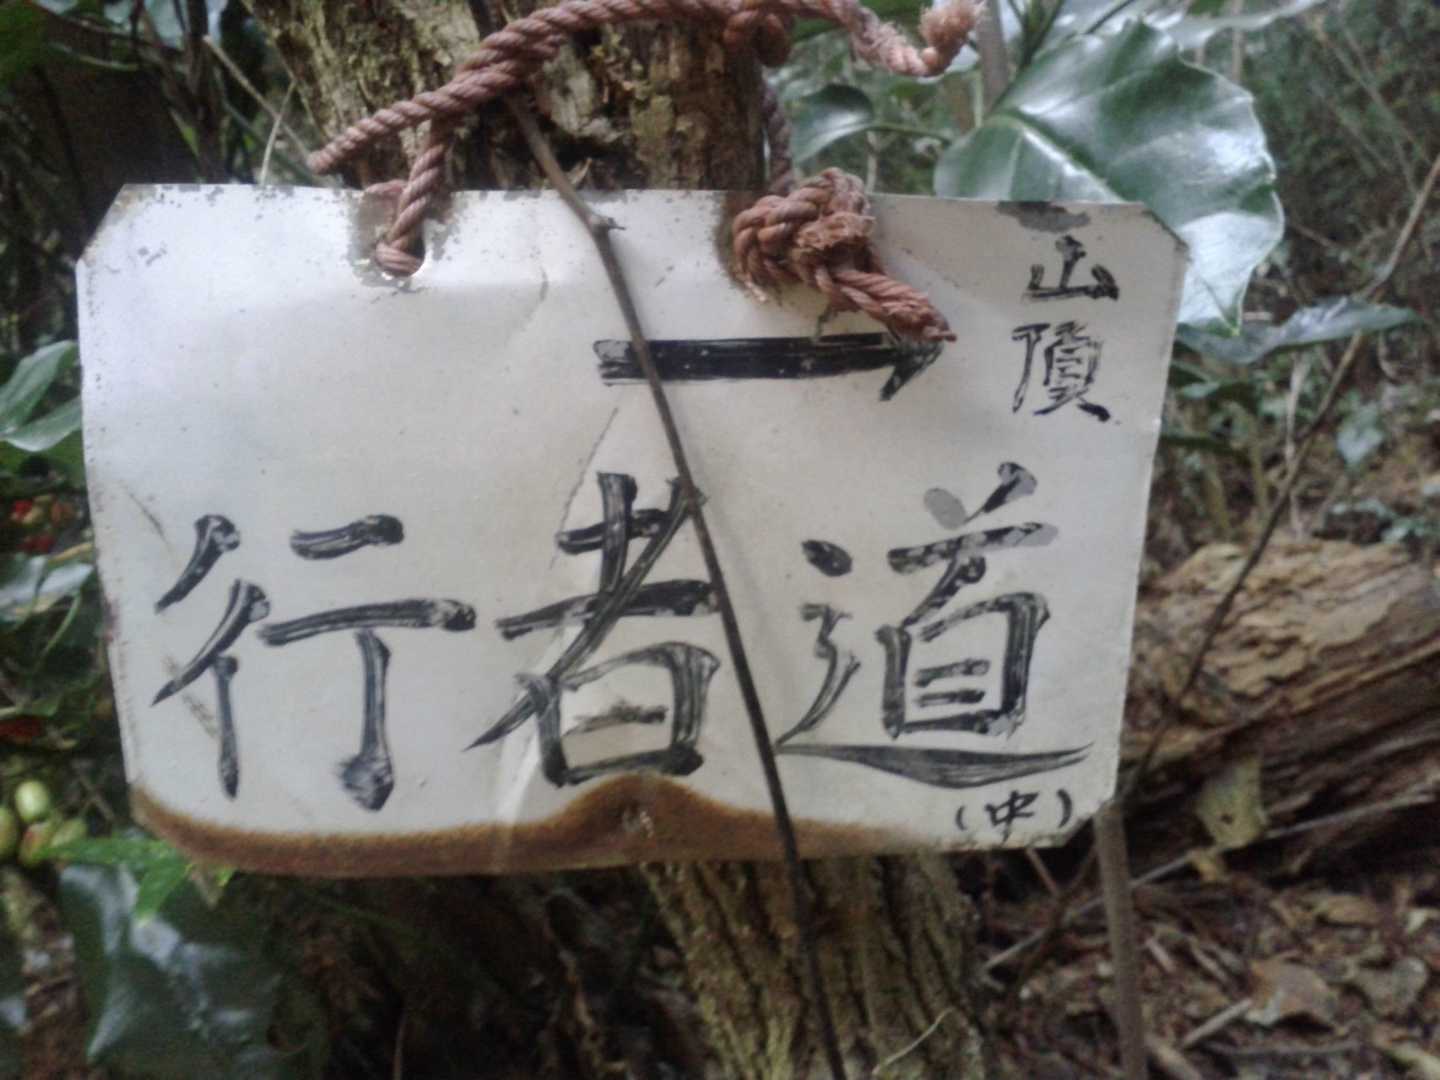 → 山頂
行者道
(中)